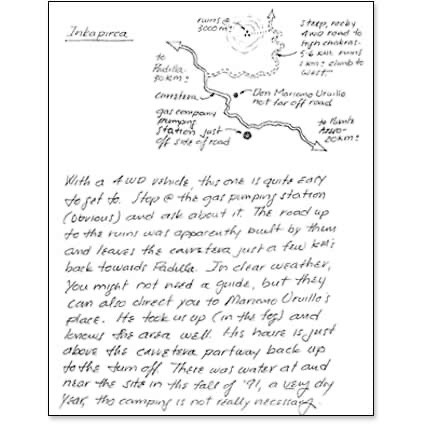 Inkapirca
ruins @
3000m?
Steep, rocky
4WD road to
high chakras.
5-6 km? ruins
1 km? climb to
west.
to
Padilla
30 km?
carretera
Don Mariano Urullo
not far off road
gas company
pumping
station just
off side of road
to
20 km?
With a 4WD vehicle, this one is quite easy
to get to. Stop @ the gas pumping station
(obvious) and ask about it. The road up
to the ruins was apparently built by them
and leaves the carretera just a few km's
back towards Padilla. In clear weather,
you might not need a guide, but they
can also direct you to Mariano Uruillo's
place. He took us up (in the fog) and
knows the area well. His house is just
above the carretera partway back up
to the turn off. There was water at and
near the site in the fall of '91, a very dry
year, tho camping is not really necessary.